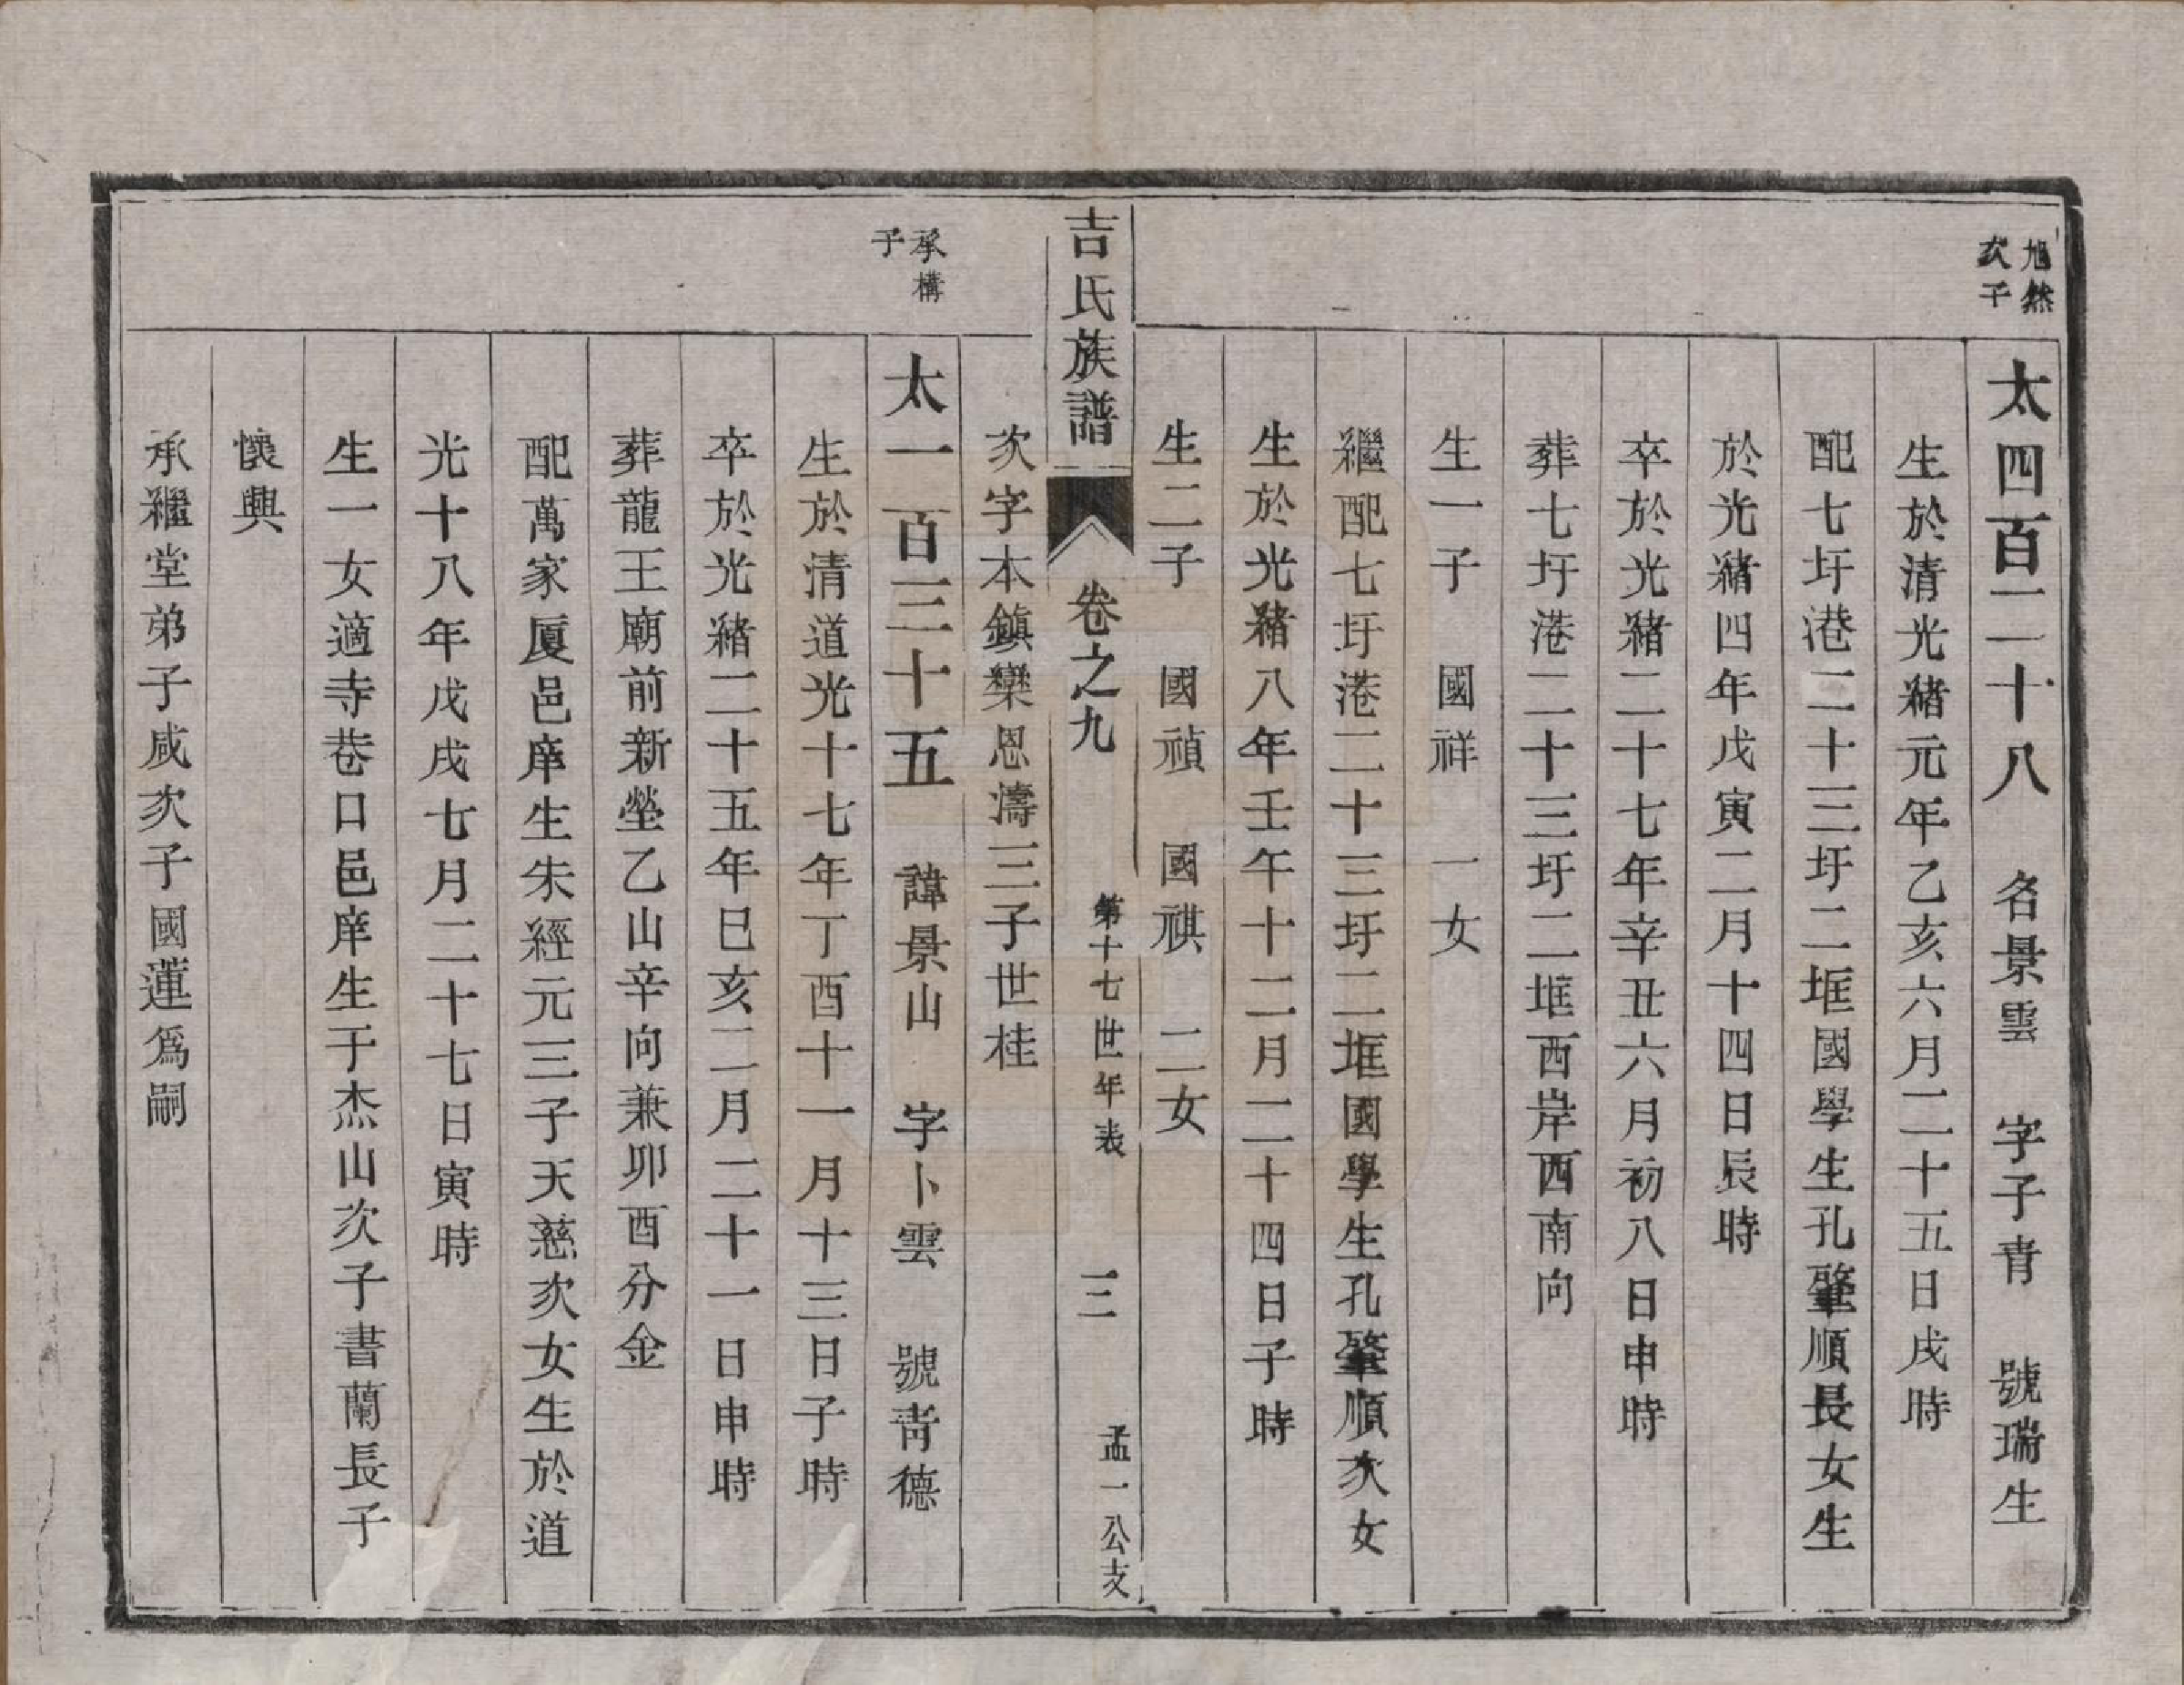 旭然
次子
太四百二十八 名景雲 字子青 號瑞生
生於清光緒元年乙亥六月二十五日戌時
配七圩港二十三圩二堐國學生孔肇順長女生
於光緒四年戊寅二月十四日辰時
卒於光緒二十七年辛丑六月初八日申時
葬七圩港二十三圩二堐西岸西南向
生一子 國祥 一女
繼配七圩港二十三圩二堐國學生孔肇順次女
生於光緒八年壬午十二月二十四日子時
生二子 國禎 國祺 二女
吉氏族譜 卷之九 第十七世年表 三 孟一公支
次字本鎮欒恩濤三子世桂
承構
子
太一百三十五 諱景山 字卜雲 號青德
生於清道光十七年丁酉十一月十三日子時
卒於光緒二十五年己亥二月二十一日申時
葬龍王廟前新塋乙山辛向兼卯酉分金
配萬家厦邑庠生朱經元三子天慈次女生於道
光十八年戊戌七月二十七日寅時
生一女適寺巷口邑庠生于杰山次子書蘭長子
懷興
承繼堂弟子咸次子國蓮爲嗣